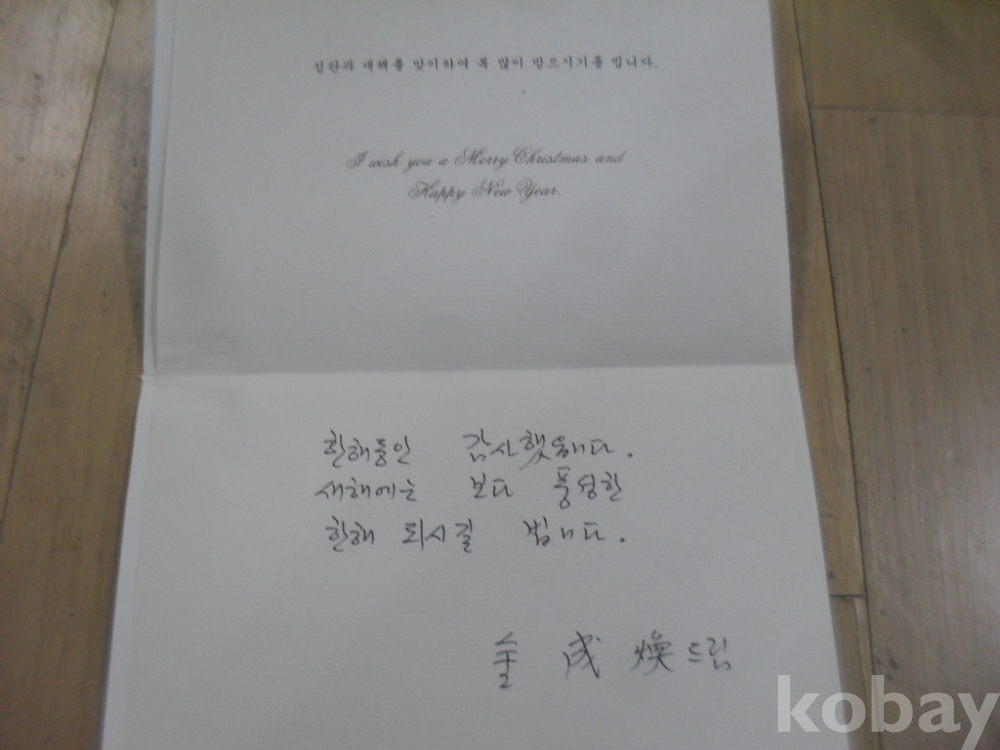 성탄과 새해를 맞이하여 복 많이 받으시기를 빕니다.
I wish you a Merry Christmas and
Happy New Year.
한해동안 감사했읍니다.
새해에는 보다 풍성한
한해 되시길 빕니다.
金 成 煥 드림
kobay